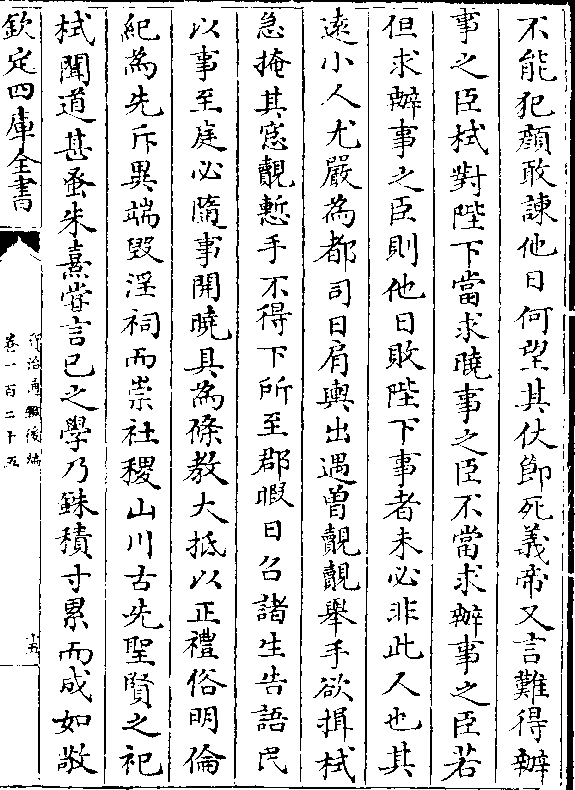 不能犯顔敢諫他日何望其仗節死義帝又言難得辦
事之臣栻對陛下當求曉事之臣不當求辦事之臣若
但求辦事之臣則他日敗陛下事者未必非此人也其
逺小人尤嚴為都司日肩輿出遇曽覿覿舉手欲揖栻
急掩其窓覿慙手不得下所至郡暇日召諸生告語民
以事至庭必隨事開曉具為條教大抵以正禮俗明倫
紀為先斥異端毀淫祠而崇社稷山川古先聖賢之祀
栻聞道甚蚤朱熹嘗言已之學乃銖積寸累而成如敬
欽定四庫全書
卷一百二十五
十五